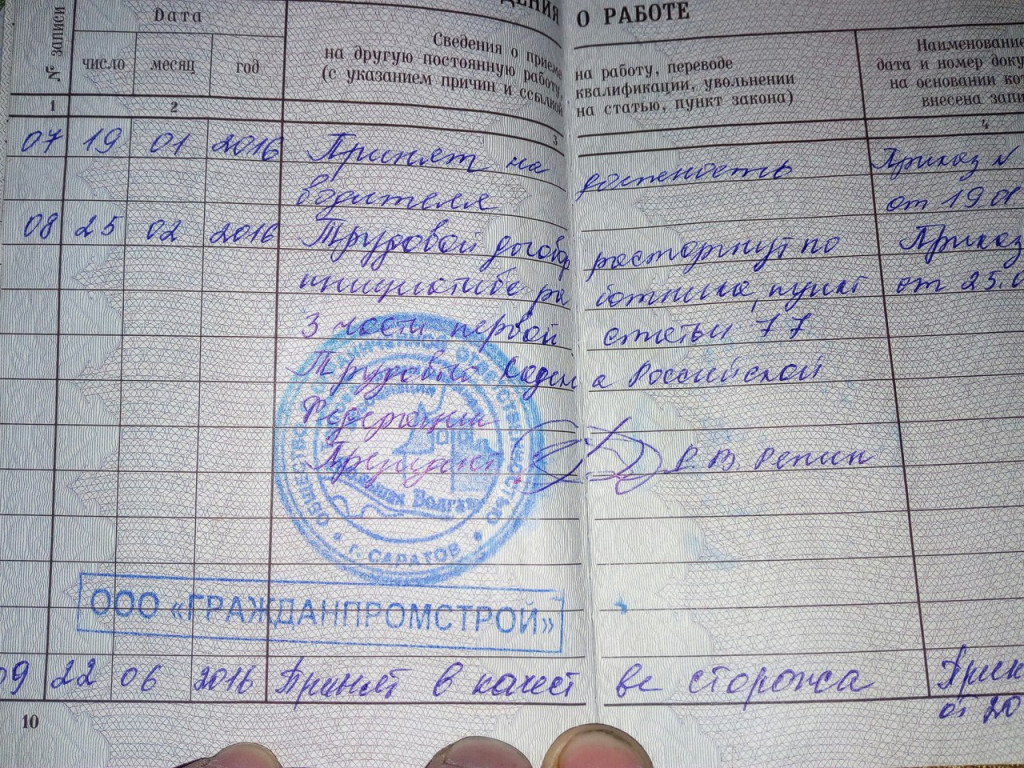 ДЕНИЯ О РАБОТЕ
№ записи
Дата
число месяц год
Сведения о приеме
на другую постоянную работу,
(с указанием причин и ссылкой
на работу, переводе
квалификации, увольнении
на статью, пункт закона)
Наименование
дата и номер доку
на основании ко
внесена запи
1 2 3 4
07 19 01 2016 Принят на должность Приказ N
водителя от 19 01
08 25 02 2016 Трудовой договор расторгнут по Приказ
инициативе работника, пункт от 25.0
3 части первой статьи 77
Трудового Кодекса Российской
Федерации
В. Репин
ОБЩЕСТВО С ОГРАНИЧЕННОЙ ОТВЕТСТВЕННОСТЬЮ
Волга
* г. САРАТОВ *
ООО «ГРАЖДАНПРОМСТРОЙ»
09 22 06 2016 Принят в качестве сторожа Прик
от 20
10